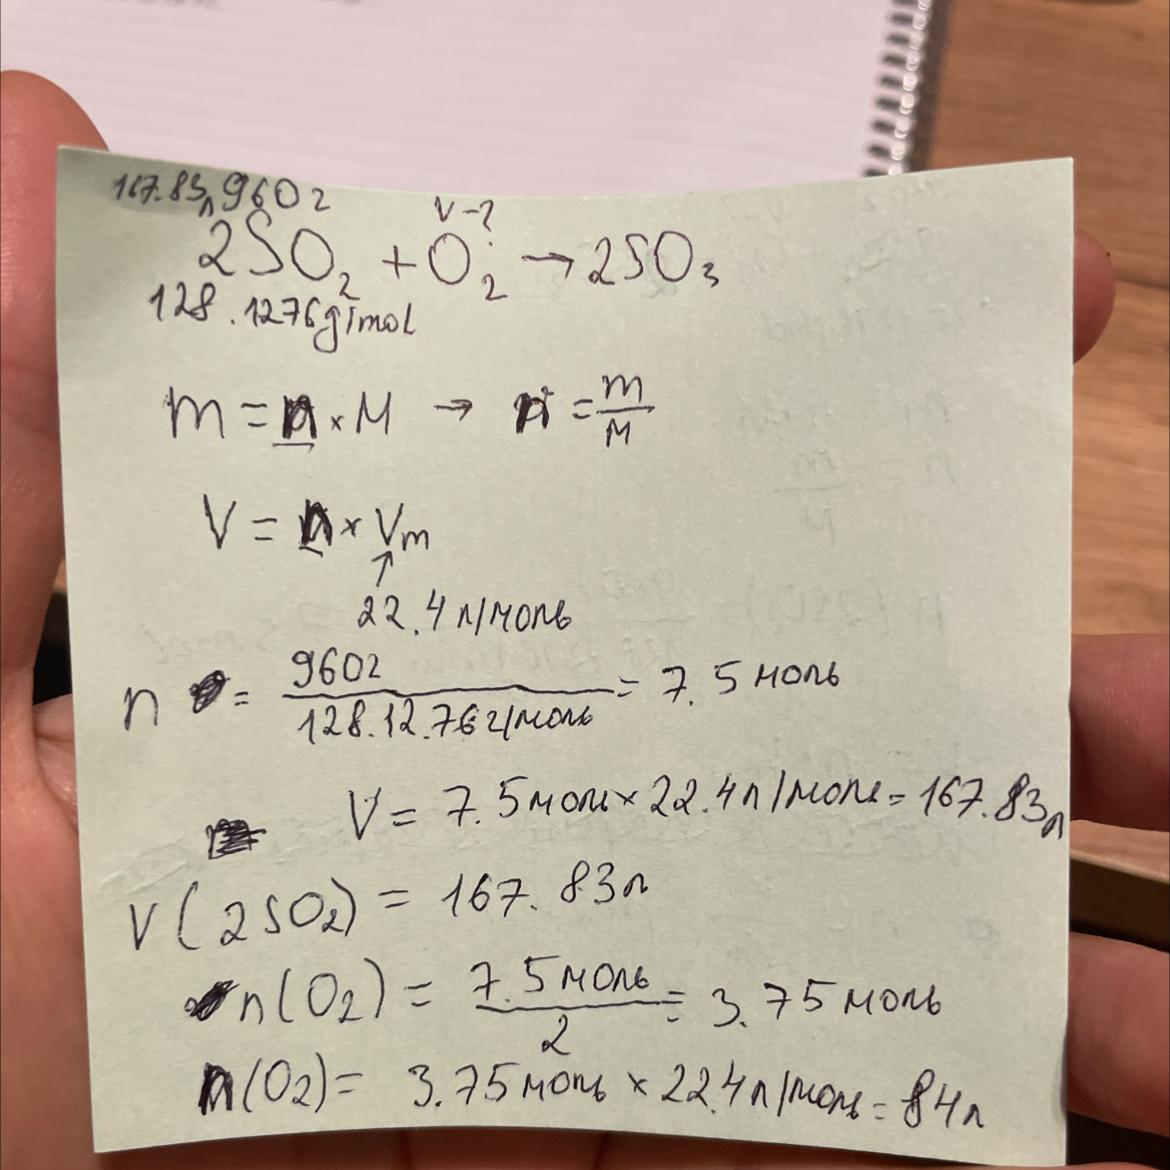 167.83л 960г
V-?
2SO₂ + O₂ → 2SO₃
128.1276g/mol
m = n × M → n = m/M
V = n × Vm
↑
22.4 л/моль
n = 960г / 128.12.76г/моль = 7.5 моль
V = 7.5 моль × 22.4 л/моль = 167.83л
V(2SO₂) = 167.83л
n(O₂) = 7.5 моль / 2 = 3.75 моль
n(O₂) = 3.75 моль × 22.4 л/моль = 84л